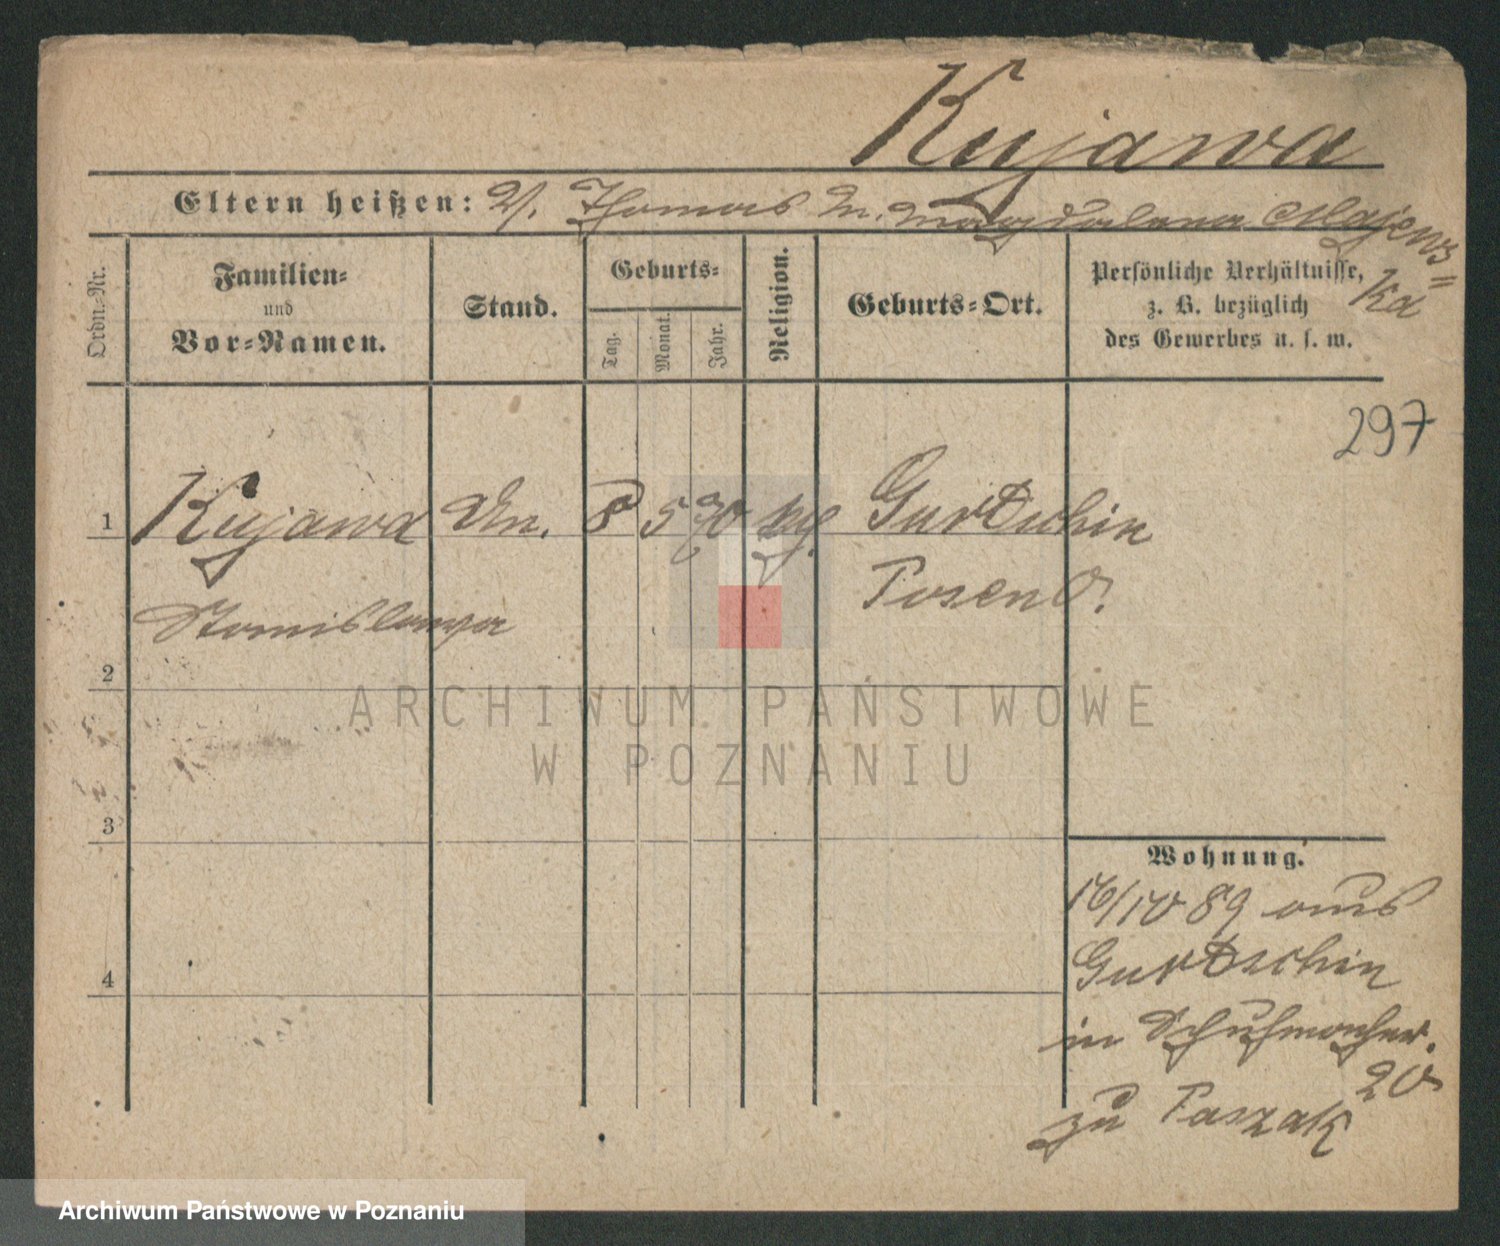 Kujawa
Eltern heißen: V. Thomas M. Magdalena Majews=
ka
Ordn.-Nr.
Familien-
und
Vor-Namen.
Stand.
Geburts-
Tag.
Monat.
Jahr.
Religion.
Geburts-Ort.
Persönliche Verhältnisse,
z. B. bezüglich
des Gewerbes u. s. w.
297
1 Kujawa Un. 8 5 70 kth. Gurtschin
Posen O.
Stanislawa
2
3
4
Wohnung.
16/10 89 aus
Gurtschin
in Schuhmacher.
20
zu Paszak
ARCHIWUM PAŃSTWOWE
W POZNANIU
Archiwum Państwowe w Poznaniu